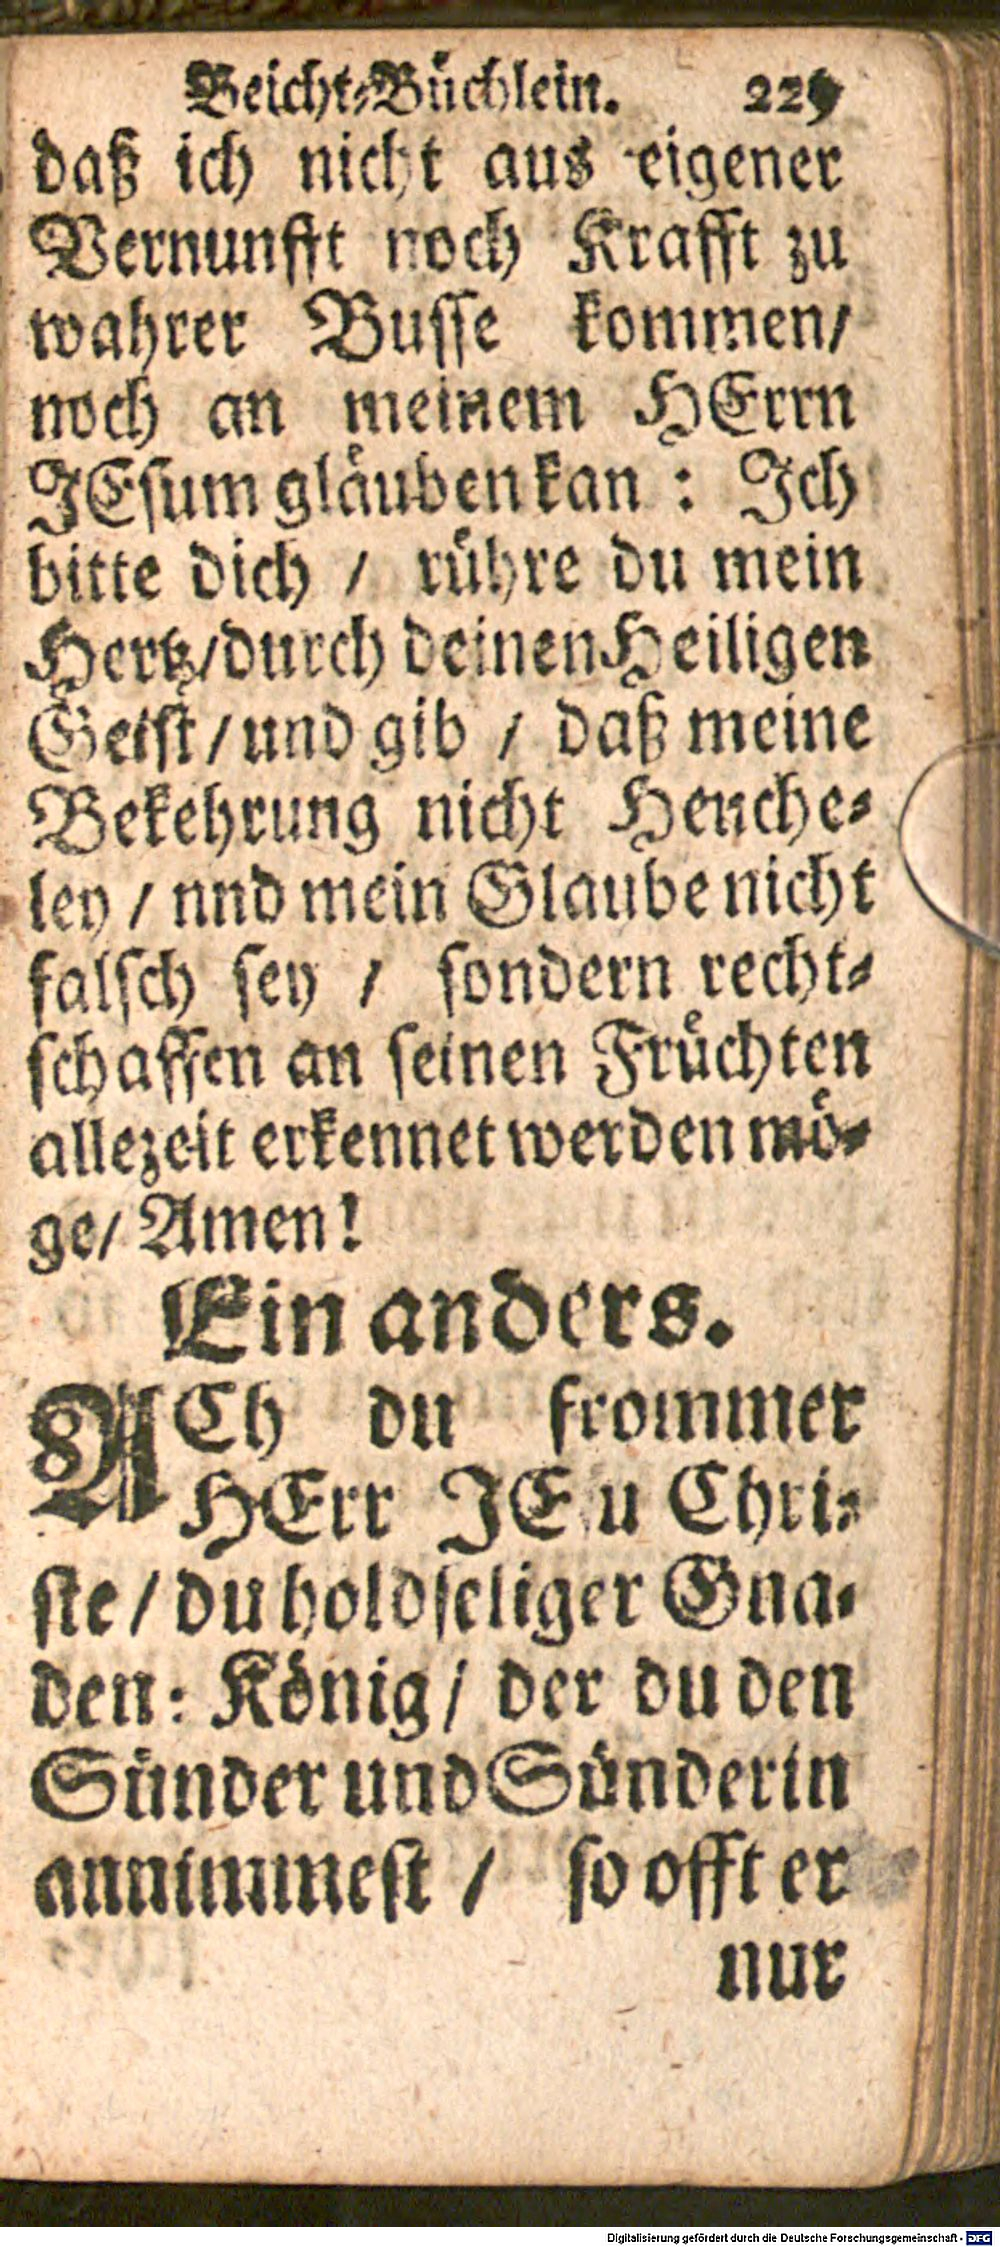 Beicht-Büchlein. 229
daß ich nicht aus eigener
Vernunfft noch Krafft zu
wahrer Busse kommen/
noch an meinem HErrn
JEsum gläuben kan : Ich
bitte dich / rühre du mein
Hertz/durch deinen Heiligen
Geist/und gib / daß meine
Bekehrung nicht Henche-
ley / nnd mein Glaube nicht
falsch sey / sondern recht-
schaffen an seinen Früchten
allezeit erkennet werden mö-
ge/ Amen!
Ein anders.
ACh du frommer
HErr JE u Chri-
ste / du holdseliger Gna-
den: König/ der du den
Sünder und Sünderin
annimmest / so offt er
nur
Digitalisierung gefördert durch die Deutsche Forschungsgemeinschaft - DFG